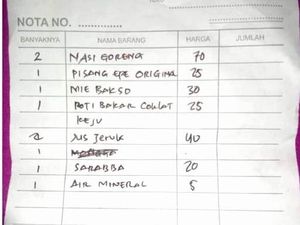 NOTA NO.
BANYAKNYA NAMA BARANG HARGA JUMLAH
2 NASI GORENG 70
1 PISANG EPE ORIGINAL 25
1 MIE BAKSO 30
1 ROTI BAKAR COKLAT 25
KEJU
2 JUS JERUK 40
1
1 SARABBA 20
1 AIR MINERAL 5